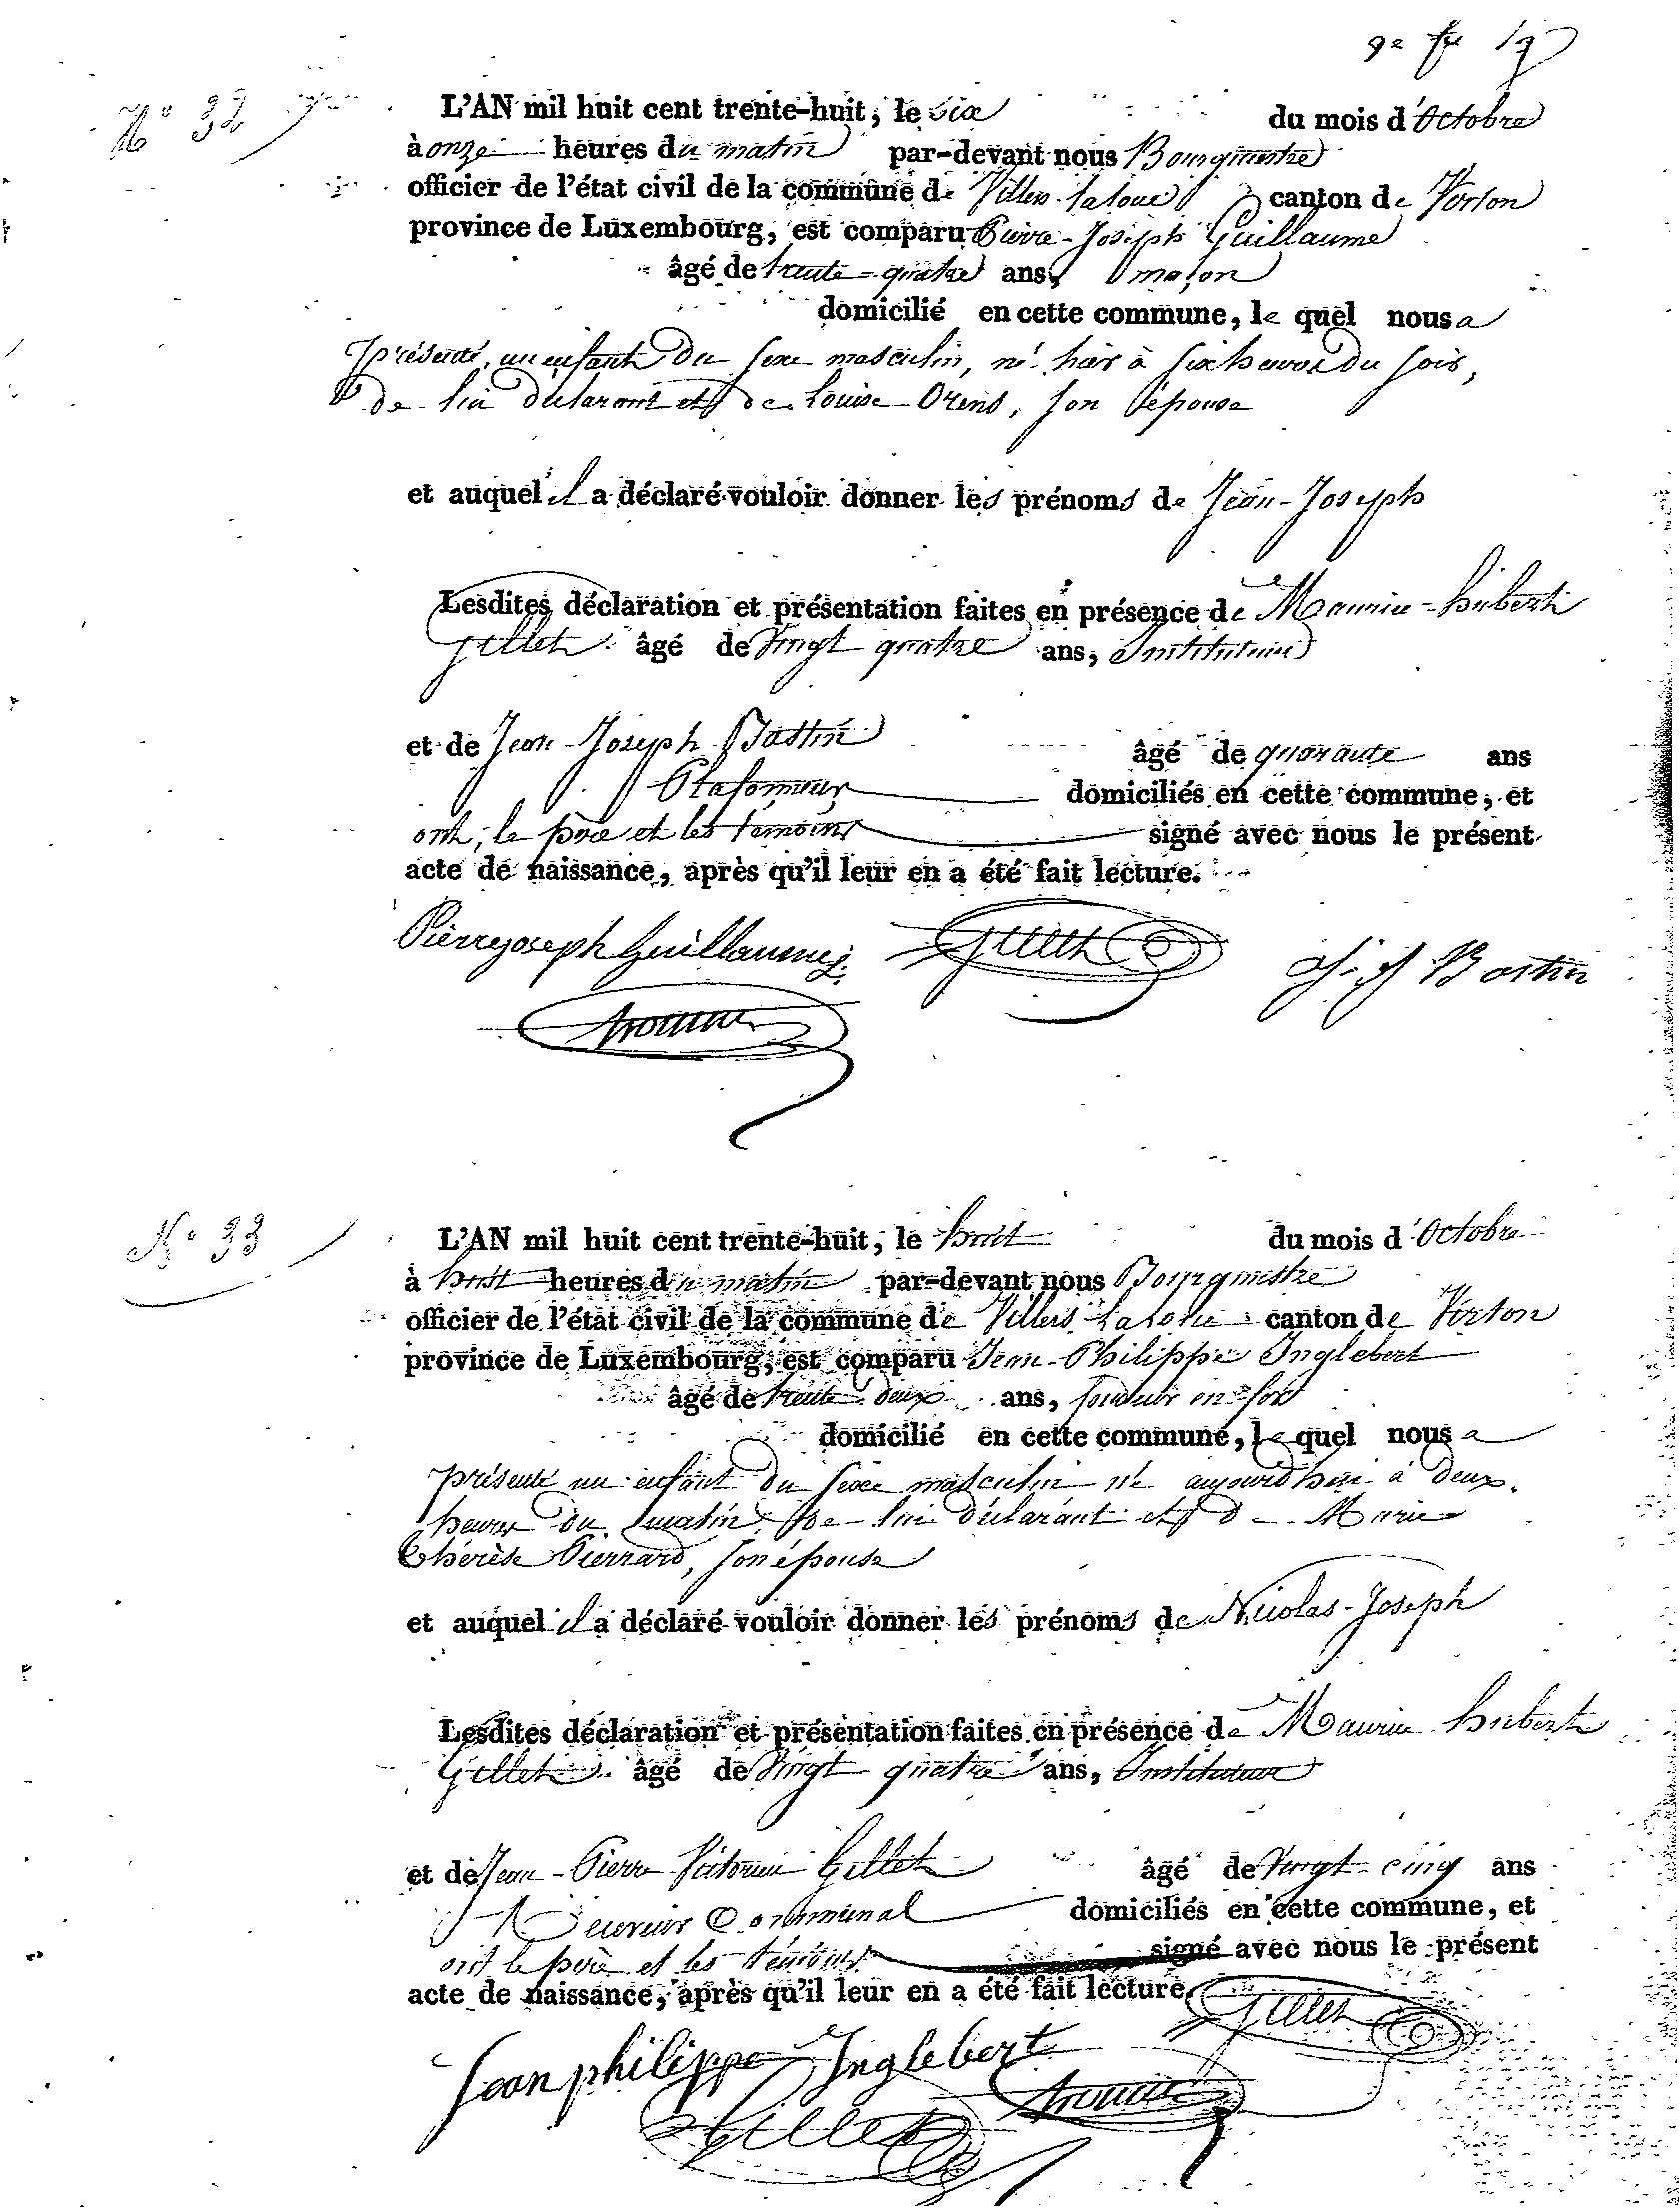 9e
N° 32
L'AN mil huit cent trente-huit, le six du mois d'Octobre
à onze heures du matin par-devant nous Bourgmestre
officier de l'état civil de la commune de Villers-la loue canton de Virton
province de Luxembourg, est comparu Pierre-Joseph Guillaume
âgé de trente-quatre ans, maçon
domicilié en cette commune, le quel nous a
présenté, un enfant du sexe masculin, né hier à six heures du soir,
de lui déclarant et de Louise Orens, son épouse
et auquel il a déclaré vouloir donner les prénoms de Jean-Joseph
Lesdites déclaration et présentation faites en présence de Maurice-hubert
Gillet âgé de Vingt quatre ans, Instituteur
et de Jean-Joseph Bastin âgé de quarante ans
Plafonneur domiciliés en cette commune, et
ont, le père et les témoins signé avec nous le présent
acte de naissance, après qu'il leur en a été fait lecture.
Pierre joseph Guillaume Gillet J. J. Bastin
N° 33
L'AN mil huit cent trente-huit, le huit du mois d'Octobre
à huit heures du matin par-devant nous Bourgmestre
officier de l'état civil de la commune de Villers-la loue canton de Virton
province de Luxembourg, est comparu Jean-Philippe Inglebert
âgé de trente deux ans,
domicilié en cette commune, le quel nous a
présenté un enfant du sexe masculin né aujourd'hui à deux
heures du matin, de lui déclarant et de Marie
Thérèse Pierrard, son épouse
et auquel il a déclaré vouloir donner les prénoms de Nicolas-Joseph
Lesdites déclaration et présentation faites en présence de Maurice hubert
Gillet âgé de Vingt quatre ans, Instituteur
et de Jean-Pierre Victorin Gillet âgé de Vingt-cinq ans
Receveur Communal domiciliés en cette commune, et
ont le père et les témoins signé avec nous le présent
acte de naissance, après qu'il leur en a été fait lecture.
Gillet
Jean philippe Inglebert
Gillet